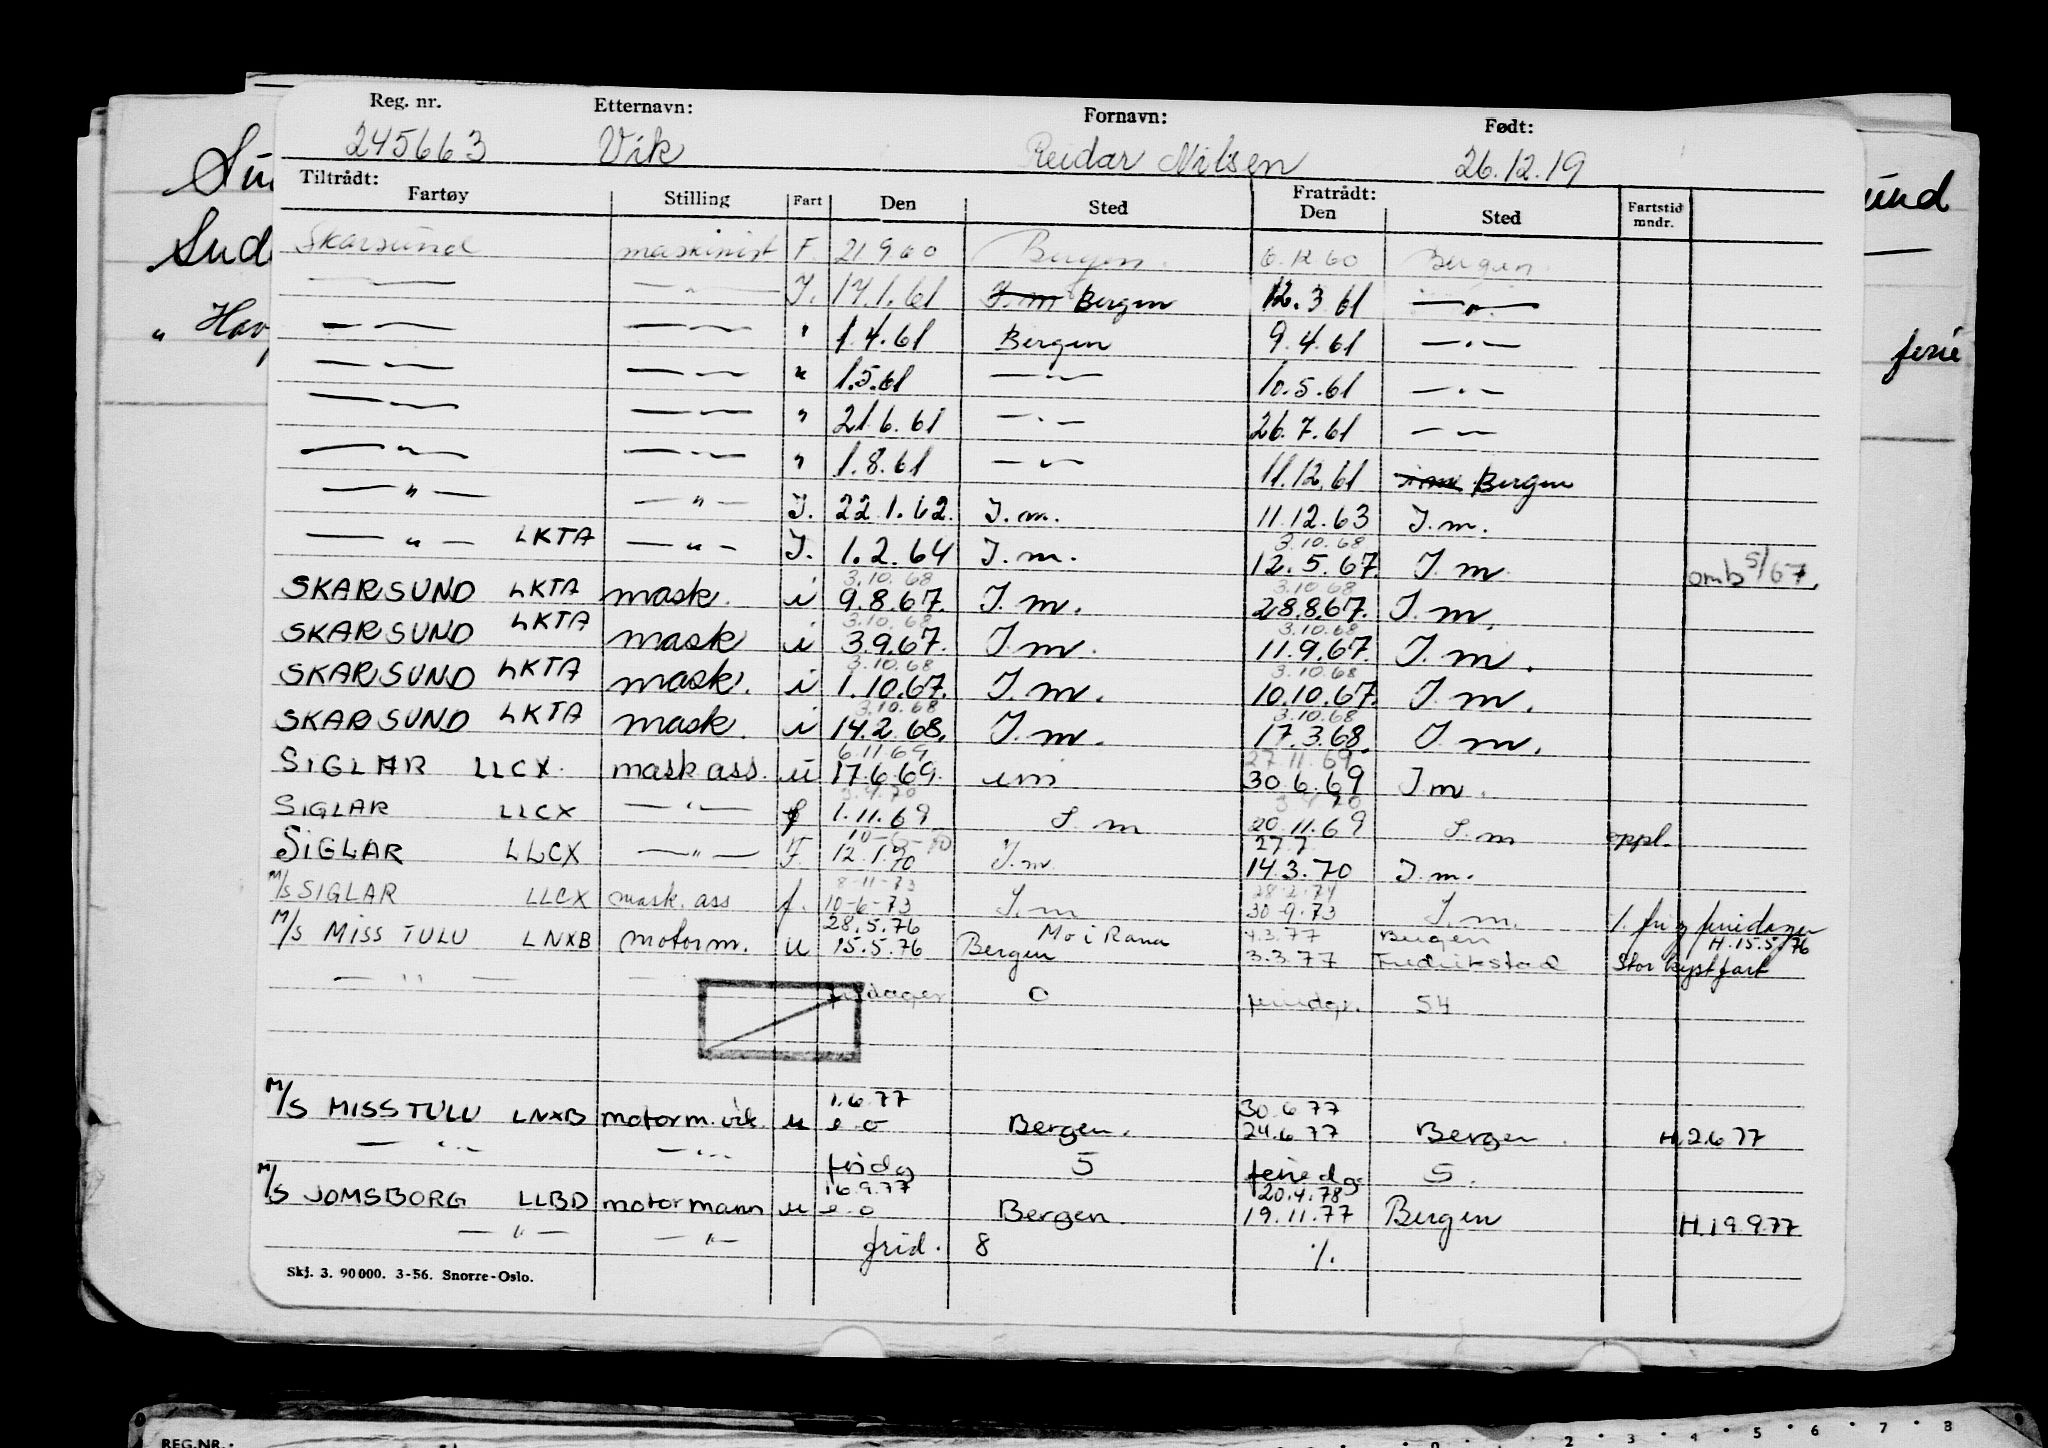 Reg. nr. Etternavn: Fornavn: Født:
245663 Vik Reidar Nilsen 26.12.19
Tiltrådt: Fratrådt:
Fartøy Stilling Fart Den Sted Den Sted Fartstid mndr.
Skarsund maskinist F. 21 9 60 Bergen. 6.12 60 Bergen
— — " — J. 17.1.61 J. m Bergen 12.3 61 — " —
— " — — " — " 1.4.61 Bergen 9.4.61 — " —
— " — — " — " 1.5.61 — " — 10.5.61 — " —
— " — — " — " 21.6.61 — " — 26.7.61 — " —
— " — — " — " 1.8.61 — " — 11.12.61 i m Bergen
— " — — " — J. 22.1.62. J. m. 11.12.63 J. m.
3.10.68
— " — LKTA — " — J. 1.2.64 J. m. 12.5.67. J. m omb 5/67.
3.10.68 3.10.68
SKARSUND LKTA mask. i 9.8.67. J. m. 28.8.67. J. m.
3.10.68 3.10.68
SKARSUND LKTA mask i 3.9.67. J. m. 11.9.67. J. m.
3.10.68 3.10.68
SKARSUND LKTA mask. i 1.10.67. J. m. 10.10.67. J. m.
3.10.68 3.10.68
SKARSUND LKTA mask. i 14.2.68. J. m. 17.3.68. J. m.
6.11.69 27.11.69
SIGLAR LLCX. mask ass. u 17.6.69. im 30.6.69 J m.
3.4.70 3 4 70
SIGLAR LLCX — " — f 1.11.69 J. m 20.11.69 J. m oppl.
27 7
SIGLAR LLCX — " — F. 12.1.70 J. m. 14.3.70 J. m.
8-11-73 28.2.74
M/S SIGLAR LLCX mask. ass f. 10-6-73 J. m 30-9.73 J. m.
28.5.76 Mo i Rana 4.3.77 Bergen H.15.5/76
M/S MISS TULU LNXB motorm. u 15.5.76 Bergen 3.3.77 Fredrikstad Stor kystfart
— " — fridager 0 feriedgr. 54
1.6.77 30.6.77
M/S MISS TULU LNXB motorm. vik. u e.o Bergen. 24.6.77 Bergen. H.2.6 77
— " — — " — fridg 5 feriedg 5.
16.9.77 20.4.78
M/S JOMSBORG LLBD motormann u e.o Bergen. 19.11.77 Bergen H.19.9.77
— " — — " — frid. 8 ./.
Skj. 3. 90 000. 3-56. Snorre-Oslo.
sund
ferie
REG.NR.:
2 · 3 · 4 · 5 · 6 · 7 · 8